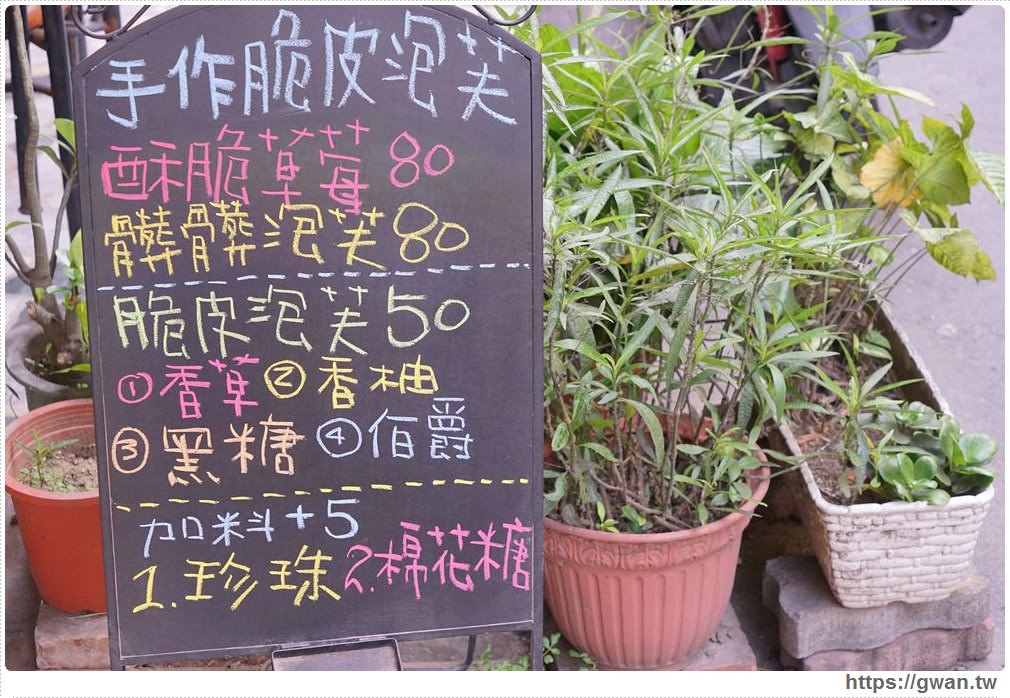 手作脆皮泡芙
酥脆草莓80
髒髒泡芙80
脆皮泡芙50
①香草②香柚
③黑糖④伯爵
加料+5
1.珍珠2.棉花糖
https://gwan.tw